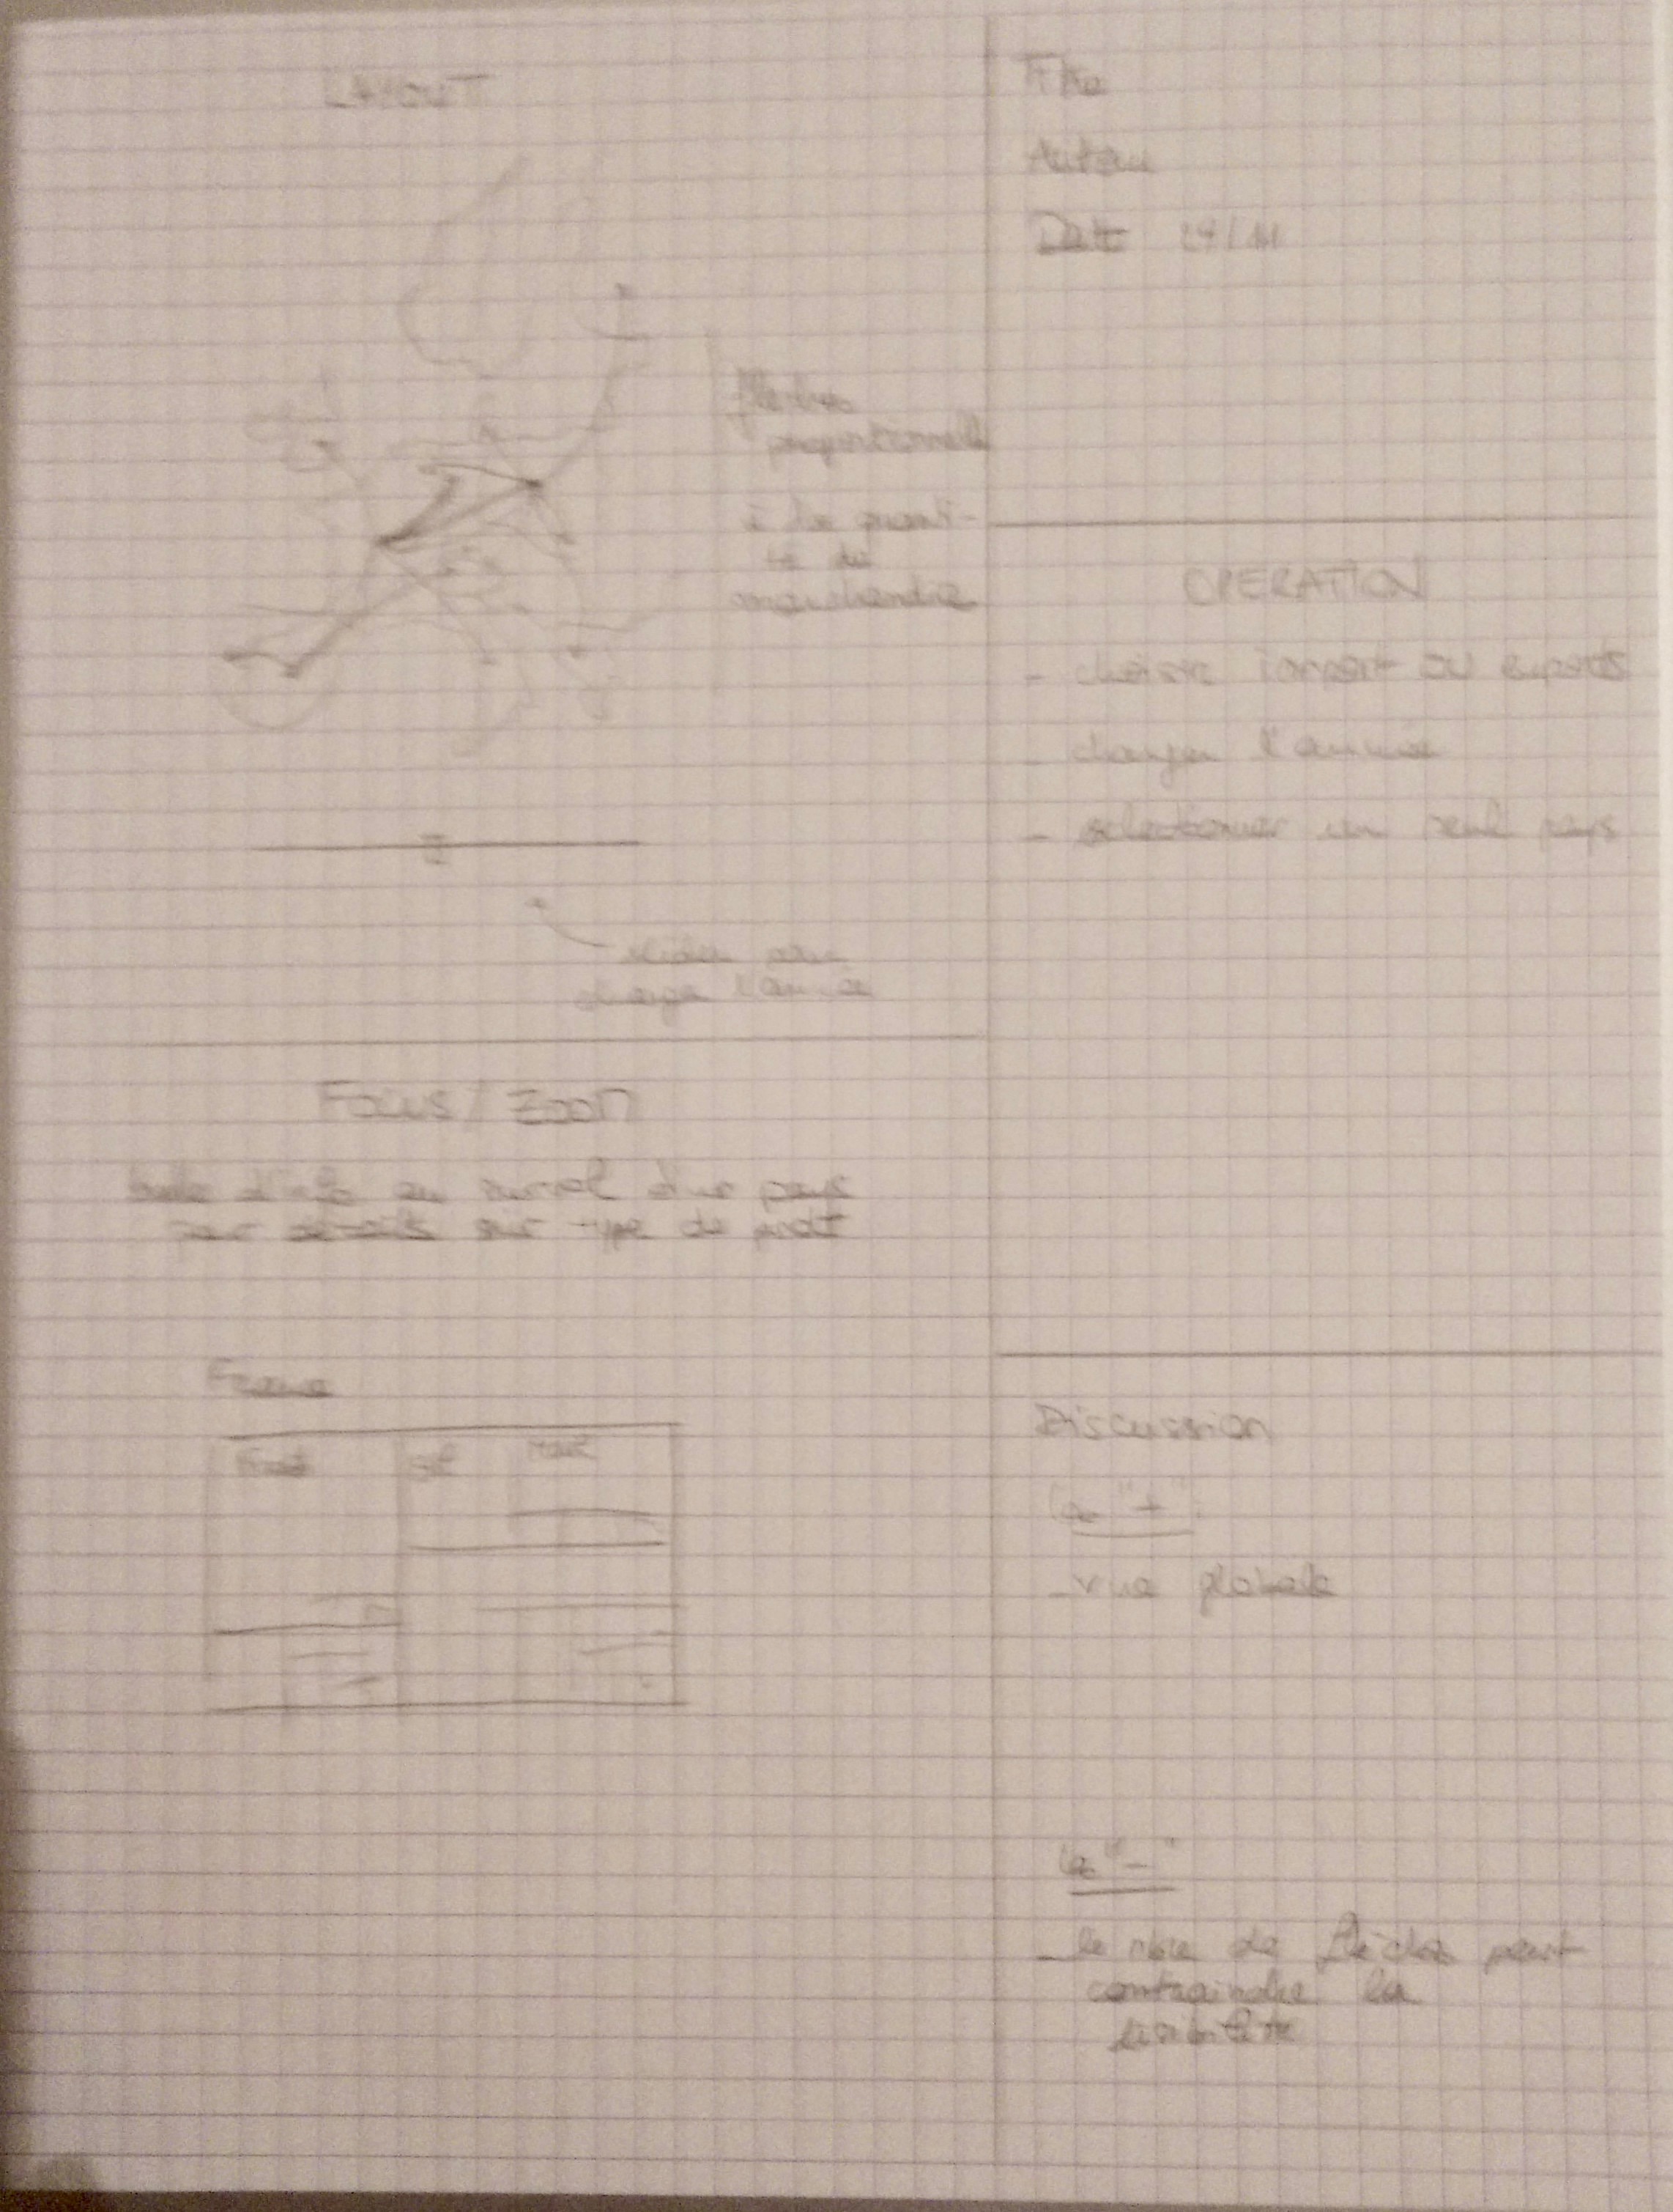 LAYOUT
flèches
proportionnelle
à la quanti-
té de
marchandise
slider pour
changer l'année
Focus / Zoom
bulle d'info au survol d'un pays
pour détails sur type de prodt
France
Title
Auteur
Date 24/11
OPERATION
- choisir import ou exports
- changer l'année
- selectionner un seul pays
Discussion
les "+"
- vue globale
les "-"
- le nbre de flèches peut
contraindre la
lisibilité